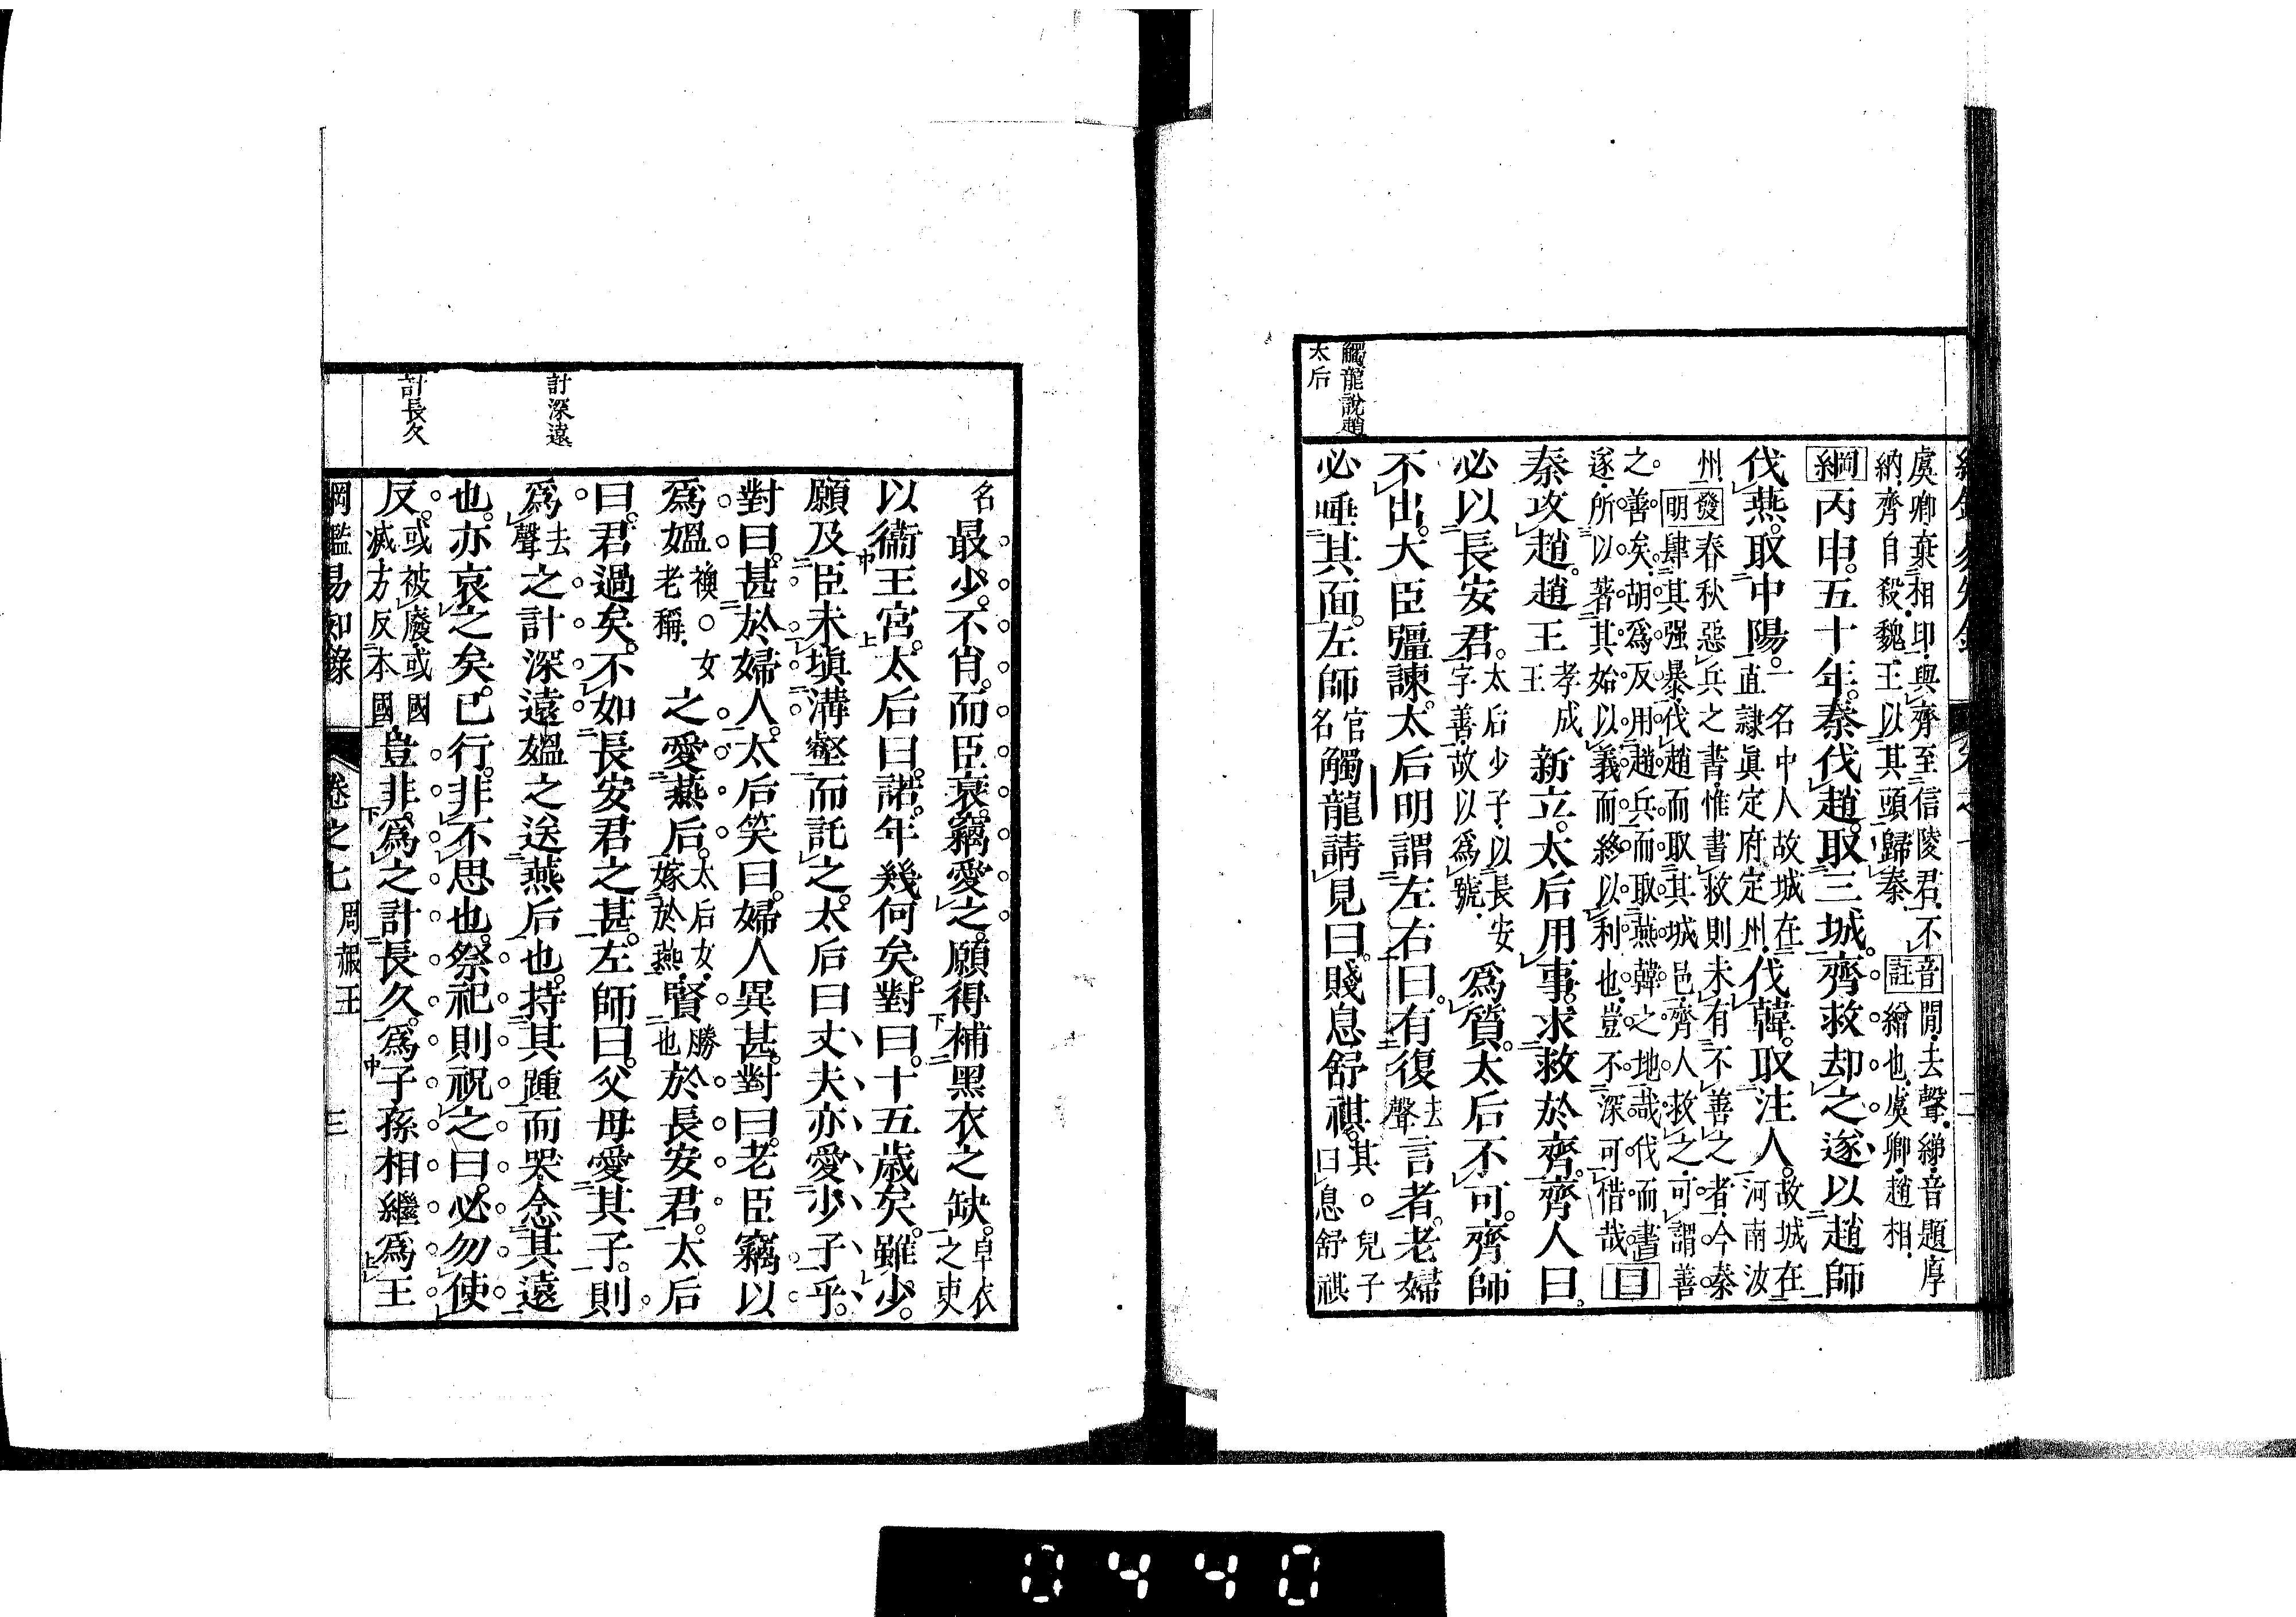 虞卿棄相印與齊至信陵君不
納齊自殺魏王以其頭歸秦
音註
閒去聲綈音題厚
繒也虞卿趙相
綱丙申。五十年。秦伐趙。取三城。齊救却之。遂以趙師
伐燕。取中陽。一名中人故城在直隸眞定府定州伐韓。取注人。故城在河南汝
州
發明
春秋惡兵之書惟書救則未有不善之者今秦
肆其强暴伐趙而取其城邑齊人救之可謂善
之善矣胡爲反用趙兵而取燕韓之地哉伐而書
遂所以著其始以義而終以利也豈不深可惜哉目
秦攻趙。趙王孝成王新立。太后用事。求救於齊。齊人曰。
必以長安君。太后少子以長安字善故以爲號爲質。太后不可。齊師
不出。大臣彊諫。太后明謂左右曰。有復去聲言者。老婦
必唾其面。左師官名觸龍請見曰。賤息舒祺。其○兒子曰息舒祺
觸龍說趙
太后
名最少。不肖。而臣衰。竊愛之。願得補黑衣之缺。皁衣之吏
以衞王宮。太后曰。諾。年幾何矣。對曰。十五歲矣。雖少。
願及臣未塡溝壑而託之。太后曰丈夫亦愛少子乎。
對曰。甚於婦人。太后笑曰。婦人異甚。對曰。老臣竊以
爲媼襖○女老稱之愛燕后。太后女嫁於燕賢勝也於長安君。太后
曰。君過矣。不如長安君之甚。左師曰。父母愛其子。則
爲去聲之計深遠媼之送燕后也。持其踵而哭。念其遠
也。亦哀之矣。已行。非不思也。祭祀則祝之曰。必勿使
反。或被廢或國滅方反本國豈非爲之計長久。爲子孫相繼爲王
計深遠
計長久
綱鑑易知錄 卷之七 周赧王 三
0440